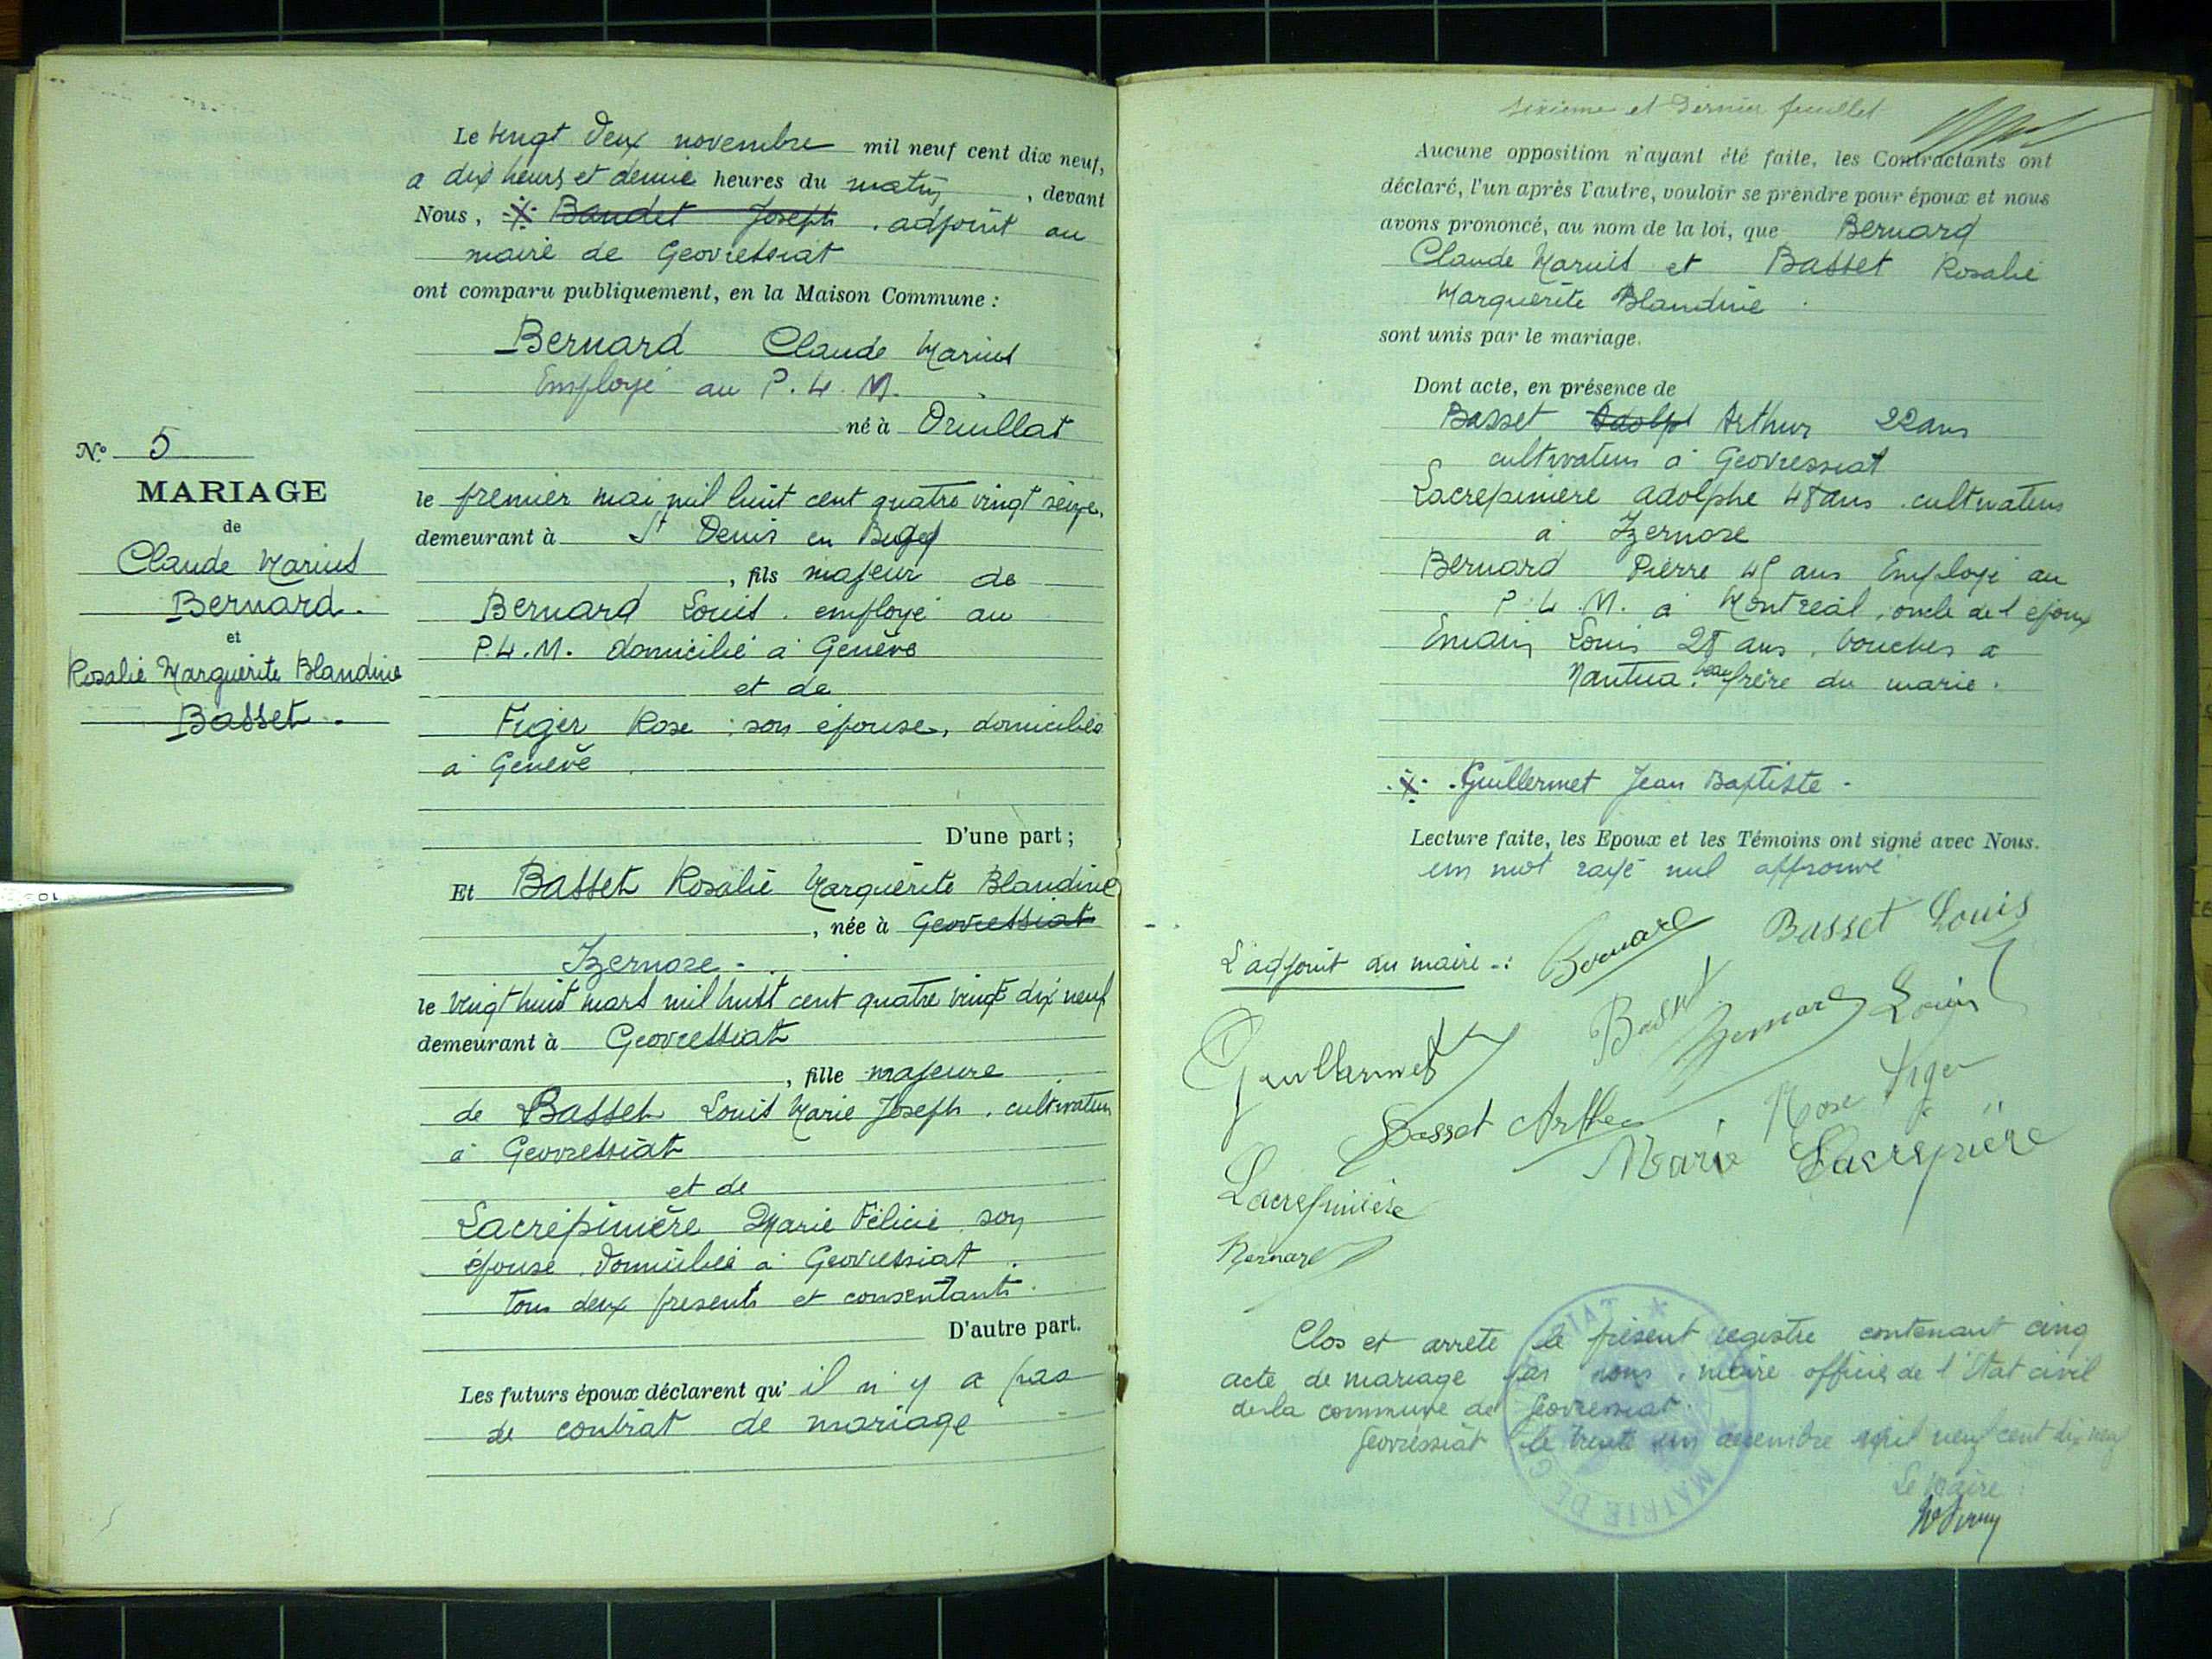 N° 5
MARIAGE
de
Claude Marius
Bernard.
et
Rosalie Marguerite Blandine
Basset.
Le vingt deux novembre mil neuf cent dix neuf,
a dix heurs et demie heures du matin, devant
Nous, Baudet Joseph. adjoint au
maire de Geovressiat
ont comparu publiquement, en la Maison Commune :
Bernard Claude Marius
Employé au P. L. M.
né à Druillat
le premier mai mil huit cent quatre vingt seize,
demeurant à St Denis en Bugey
, fils majeur de
Bernard Louis. employé au
P. L. M. domicilié à Genève
et de
Figer Rose : son épouse, domiciliés
à Genève
D'une part ;
Et Basset Rosalie Marguerite Blandine
, née à Geovressiat
Izernore -
le vingt huit mars mil huit cent quatre vingt dix neuf
demeurant à Geovressiat
, fille majeure
de Basset Louis Marie Joseph. cultivateur
à Geovressiat
et de
Lacrépinière Marie Félicie son
épouse. domiciliés à Geovressiat
tous deux presents et consentants.
D'autre part.
Les futurs époux déclarent qu' il n'y a pas
de contrat de mariage
sixième et dernier feuillet
Aucune opposition n'ayant été faite, les Contractants ont
déclaré, l'un après l'autre, vouloir se prendre pour époux et nous
avons prononcé, au nom de la loi, que Bernard
Claude Marius et Basset Rosalie
Marguerite Blandine
sont unis par le mariage.
Dont acte, en présence de
Basset Adolp Arthur 22 ans
cultivateur à Geovressiat
Lacrepiniere adolphe 48 ans. cultivateur
à Izernore
Bernard Pierre 45 ans Employé au
P. L. M. à Montreal, oncle de l'époux
Louis 28 ans, boucher a
Nantua. beau frère du marie.
Guillermet Jean Baptiste -
Lecture faite, les Epoux et les Témoins ont signé avec Nous.
un mot rayé nul approuvé
L'adjoint au maire -: Bernard Basset Louis
Guillermet Basset Bernard Louis
Basset Arthur Rose Figer
Marie Lacrepiniere
Lacrepinière
Bernard
Clos et arrete le présent registre contenant cinq
acte de mariage par nous, maire officier de l'Etat civil
de la commune de Geovressiat.
Geovressiat le trente un decembre mil neuf cent dix neuf
Le Maire :
MAIRIE DE